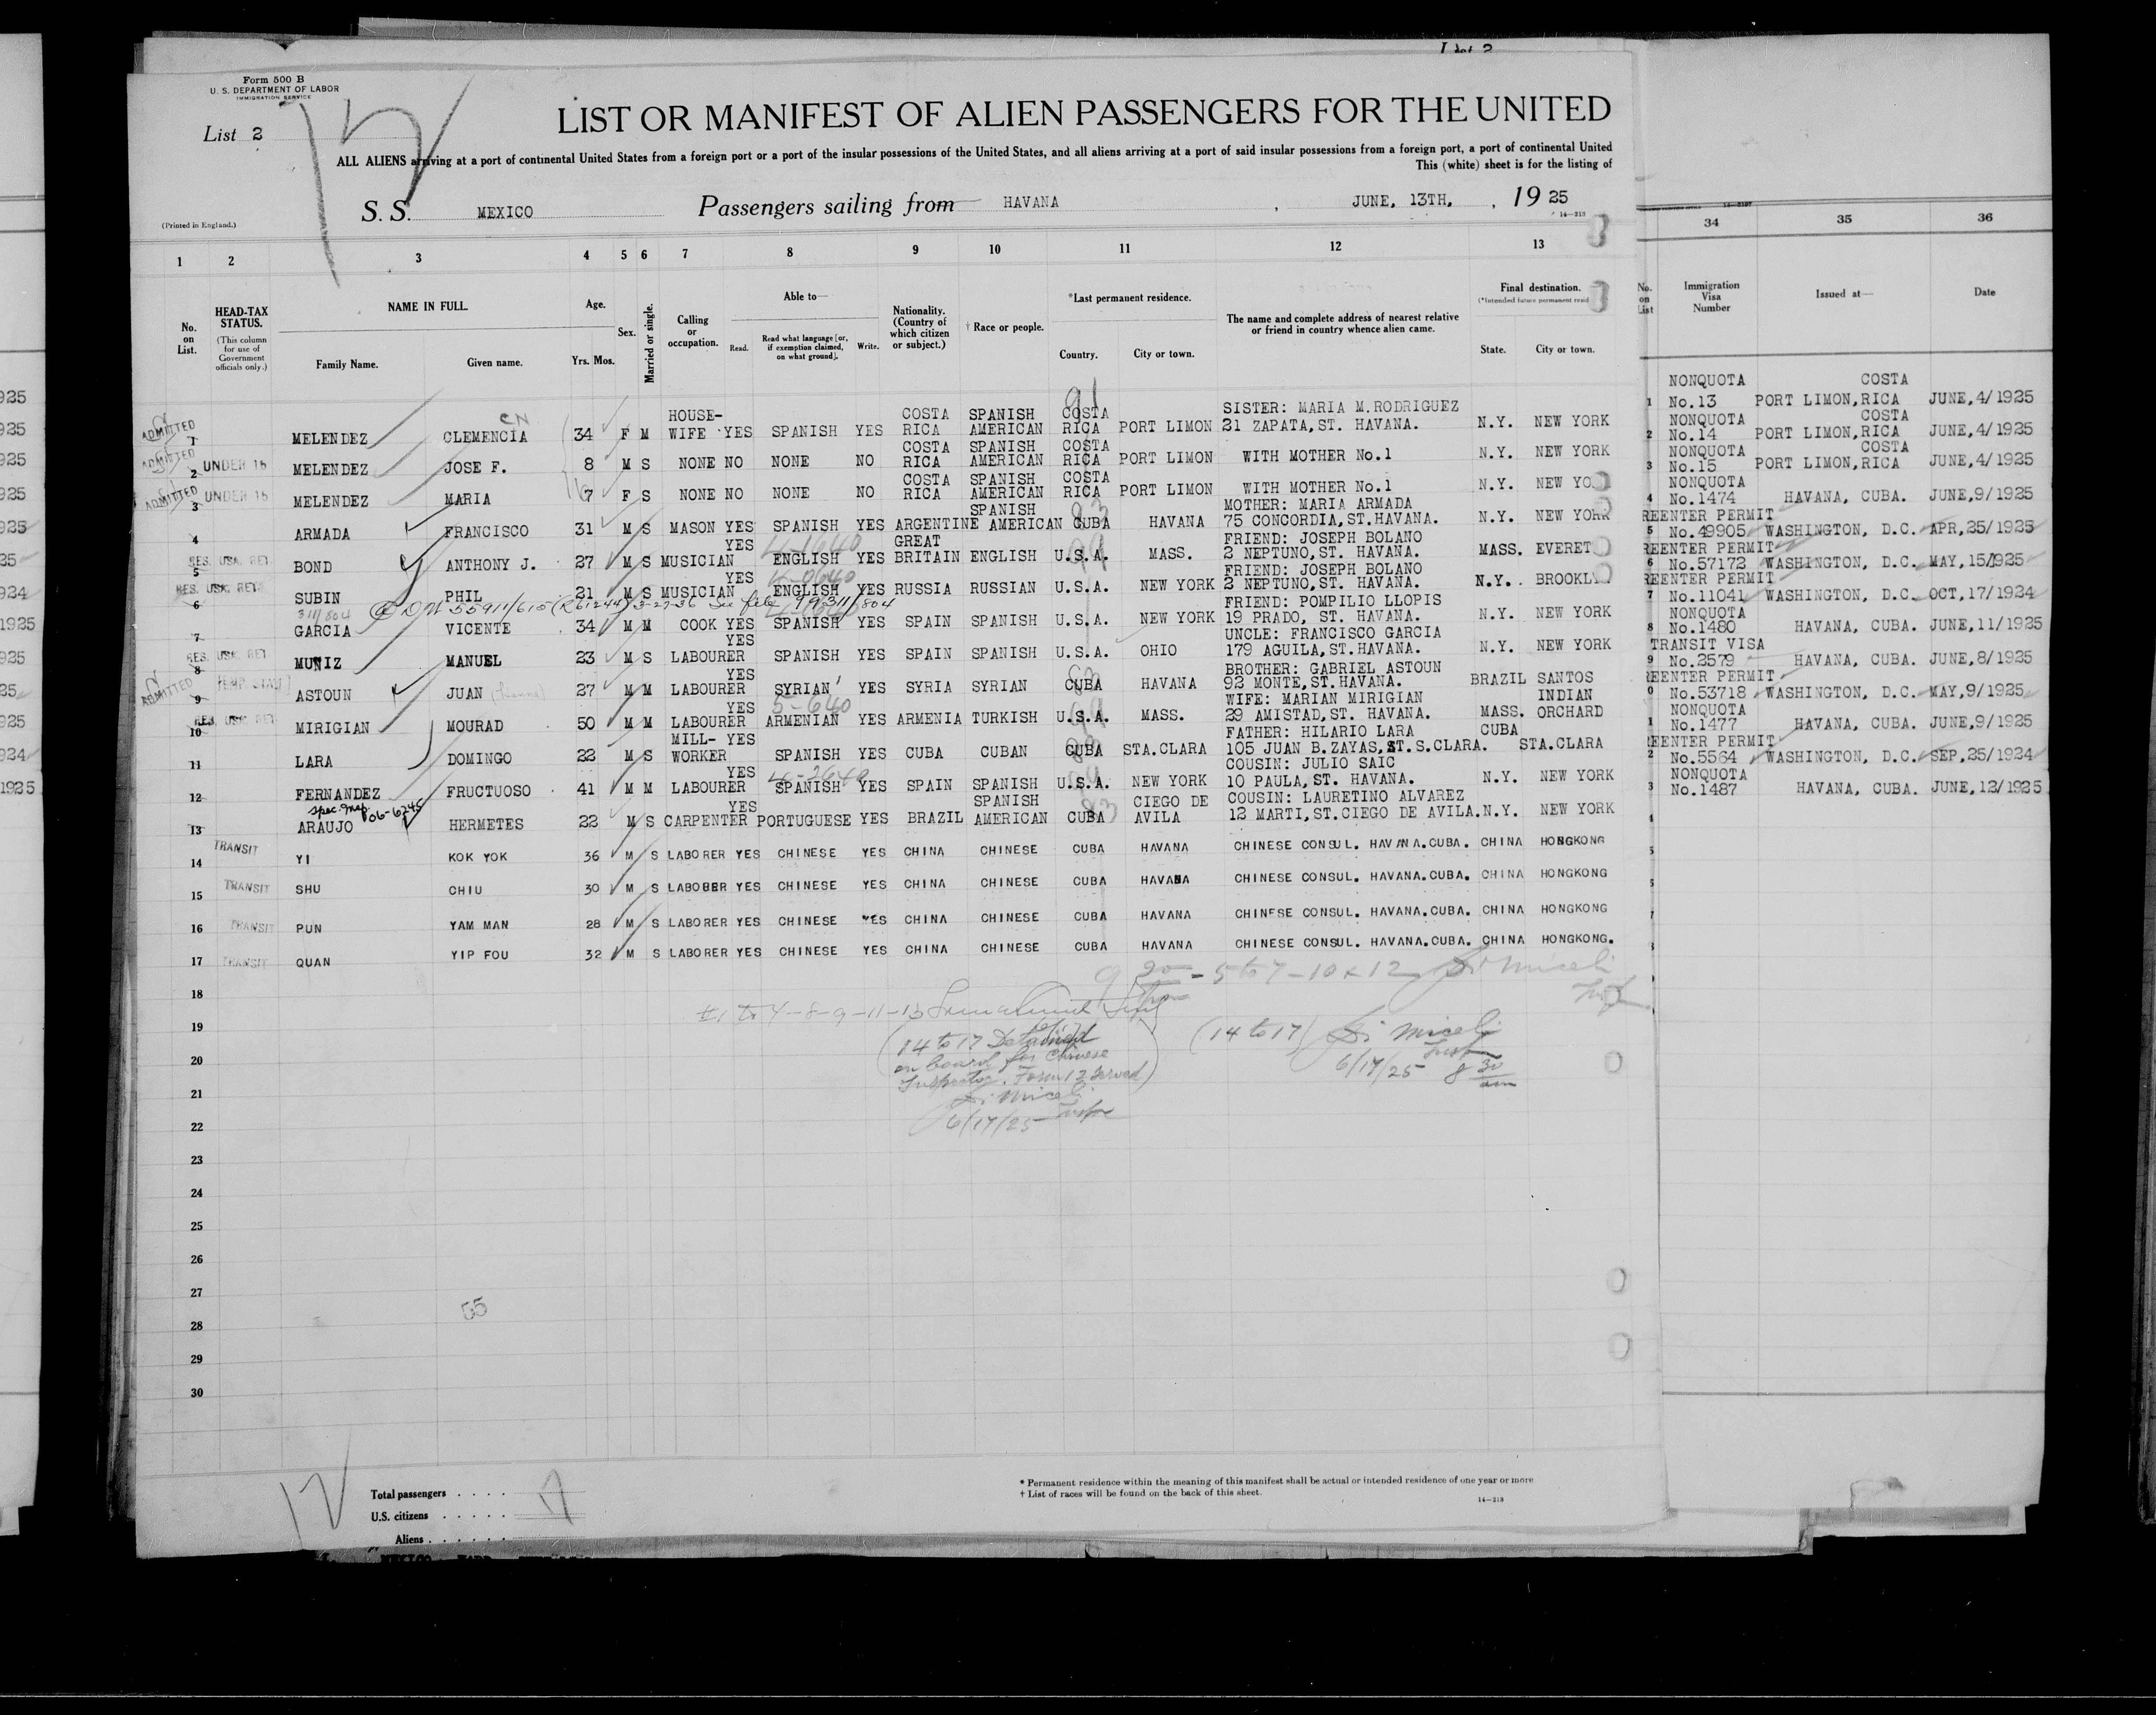 Form 500 B
U. S. DEPARTMENT OF LABOR
IMMIGRATION SERVICE
List 2
LIST OR MANIFEST OF ALIEN PASSENGERS FOR THE UNITED
ALL ALIENS arriving at a port of continental United States from a foreign port or a port of the insular possessions of the United States, and all aliens arriving at a port of said insular possessions from a foreign port, a port of continental United
This (white) sheet is for the listing of
S. S. MEXICO Passengers sailing from HAVANA , JUNE, 13TH, , 19 25
(Printed in England.)
14—213
1 2 3 4 5 6 7 8 9 10 11 12 13 34 35 36
No. on List.
HEAD-TAX STATUS.
(This column for use of Government officials only.)
NAME IN FULL.
Family Name. Given name.
Age.
Yrs. Mos.
Sex.
Married or single.
Calling or occupation.
Able to—
Read. Read what language [or, if exemption claimed, on what ground]. Write.
Nationality. (Country of which citizen or subject.)
† Race or people.
*Last permanent residence.
Country. City or town.
The name and complete address of nearest relative or friend in country whence alien came.
Final destination.
(*Intended future permanent resid
State. City or town.
No. on List
Immigration Visa Number
Issued at—
Date
ADMITTED 1 MELENDEZ CLEMENCIA 34 F M HOUSE-WIFE YES SPANISH YES COSTA RICA SPANISH AMERICAN COSTA RICA PORT LIMON SISTER: MARIA M.RODRIGUEZ 21 ZAPATA,ST. HAVANA. N.Y. NEW YORK
ADMITTED 2 UNDER 16 MELENDEZ JOSE F. 8 M S NONE NO NONE NO COSTA RICA SPANISH AMERICAN COSTA RICA PORT LIMON WITH MOTHER No.1 N.Y. NEW YORK
ADMITTED 3 UNDER 16 MELENDEZ MARIA 7 F S NONE NO NONE NO COSTA RICA SPANISH AMERICAN COSTA RICA PORT LIMON WITH MOTHER No.1 N.Y. NEW YO
4 ARMADA FRANCISCO 31 M S MASON YES SPANISH YES ARGENTINE SPANISH AMERICAN CUBA HAVANA MOTHER: MARIA ARMADA 75 CONCORDIA,ST.HAVANA. N.Y. NEW YORK
RES. USK. RET 5 BOND ANTHONY J. 27 M S MUSICIAN YES ENGLISH YES GREAT BRITAIN ENGLISH U.S.A. MASS. FRIEND: JOSEPH BOLANO 2 NEPTUNO,ST. HAVANA. MASS. EVERET
4-1640
RES. USK. RET 6 SUBIN PHIL 21 M S MUSICIAN YES ENGLISH YES RUSSIA RUSSIAN U.S.A. NEW YORK FRIEND: JOSEPH BOLANO 2 NEPTUNO,ST. HAVANA. N.Y. BROOKL
4-0640
311/804 55911/615 (R61244) 3-27-36 See file 99311/804
7 GARCIA VICENTE 34 M M COOK YES SPANISH YES SPAIN SPANISH U.S.A. NEW YORK FRIEND: POMPILIO LLOPIS 19 PRADO, ST. HAVANA. N.Y. NEW YORK
RES. USK. RET 8 MUNIZ MANUEL 23 M S LABOURER YES SPANISH YES SPAIN SPANISH U.S.A. OHIO UNCLE: FRANCISCO GARCIA 179 AGUILA,ST.HAVANA. N.Y. NEW YORK
ADMITTED 9 ASTOUN JUAN 27 M M LABOURER YES SYRIAN YES SYRIA SYRIAN CUBA HAVANA BROTHER: GABRIEL ASTOUN 92 MONTE,ST.HAVANA. BRAZIL SANTOS
RES. USK. RET 10 MIRIGIAN MOURAD 50 M M LABOURER YES ARMENIAN YES ARMENIA TURKISH U.S.A. MASS. WIFE: MARIAN MIRIGIAN 29 AMISTAD,ST. HAVANA. MASS. INDIAN ORCHARD
5-640
11 LARA DOMINGO 22 M S MILL-WORKER YES SPANISH YES CUBA CUBAN CUBA STA.CLARA FATHER: HILARIO LARA 105 JUAN B.ZAYAS,ST.S.CLARA. CUBA STA.CLARA
12 FERNANDEZ FRUCTUOSO 41 M M LABOURER YES SPANISH YES SPAIN SPANISH U.S.A. NEW YORK COUSIN: JULIO SAIC 10 PAULA,ST. HAVANA. N.Y. NEW YORK
06-6245
13 ARAUJO HERMETES 22 M S CARPENTER YES PORTUGUESE YES BRAZIL SPANISH AMERICAN CUBA CIEGO DE AVILA COUSIN: LAURETINO ALVAREZ 12 MARTI,ST.CIEGO DE AVILA. N.Y. NEW YORK
14 TRANSIT YI KOK YOK 36 M S LABORER YES CHINESE YES CHINA CHINESE CUBA HAVANA CHINESE CONSUL. HAVANA.CUBA. CHINA HONGKONG
15 TRANSIT SHU CHIU 30 M S LABORER YES CHINESE YES CHINA CHINESE CUBA HAVANA CHINESE CONSUL. HAVANA.CUBA. CHINA HONGKONG
16 TRANSIT PUN YAM MAN 28 M S LABORER YES CHINESE YES CHINA CHINESE CUBA HAVANA CHINESE CONSUL. HAVANA.CUBA. CHINA HONGKONG
17 TRANSIT QUAN YIP FOU 32 M S LABORER YES CHINESE YES CHINA CHINESE CUBA HAVANA CHINESE CONSUL. HAVANA.CUBA. CHINA HONGKONG.
1 NONQUOTA No.13 PORT LIMON, COSTA RICA JUNE,4/1925
2 NONQUOTA No.14 PORT LIMON, COSTA RICA JUNE,4/1925
3 NONQUOTA No.15 PORT LIMON, COSTA RICA JUNE,4/1925
4 NONQUOTA No.1474 HAVANA, CUBA. JUNE,9/1925
5 REENTER PERMIT No.49905 WASHINGTON, D.C. APR,25/1925
6 REENTER PERMIT No.57172 WASHINGTON, D.C. MAY,15/1925
7 REENTER PERMIT No.11041 WASHINGTON, D.C. OCT,17/1924
8 NONQUOTA No.1480 HAVANA, CUBA. JUNE,11/1925
9 TRANSIT VISA No.2579 HAVANA, CUBA. JUNE,8/1925
0 REENTER PERMIT No.53718 WASHINGTON, D.C. MAY,9/1925
1 NONQUOTA No.1477 HAVANA, CUBA. JUNE,9/1925
2 REENTER PERMIT No.5564 WASHINGTON, D.C. SEP,25/1924
3 NONQUOTA No.1487 HAVANA, CUBA. JUNE,12/1925
- 5 to 7 - 10 & 12 Di Miceli
18
1 to 4-8-9-11-13
19
14 to 17 Detained
on board for Chinese
Inspector. Form 12 served
Di Miceli
6/17/25
(14 to 17) Di Miceli
6/17/25 8 30 am
20
21
22
23
24
25
26
27
55
28
29
30
Total passengers . . . . 17
U.S. citizens . . . . .
Aliens . . . . .
* Permanent residence within the meaning of this manifest shall be actual or intended residence of one year or more
† List of races will be found on the back of this sheet.
14—213